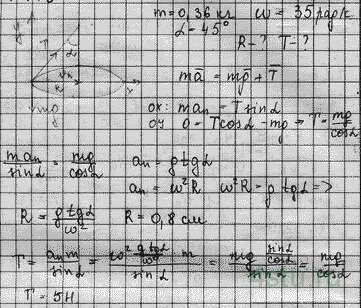 m = 0,36 кг ω = 35 рад/с
α = 45°
R - ? T - ?
y
T
α
R
x
mg
ma⃗ = mg⃗ + T⃗
ox: maₙ = T sinα
oy 0 = T cosα - mg => T = mg/cosα
maₙ/sinα = mg/cosα aₙ = g tgα
aₙ = ω²R ω²R = g tgα =>
R = g tgα/ω² R = 0,8 см
T = aₙm/sinα = ω² (g tgα/ω²) m/sinα = mg (sinα/cosα)/sinα = mg/cosα
T = 5Н